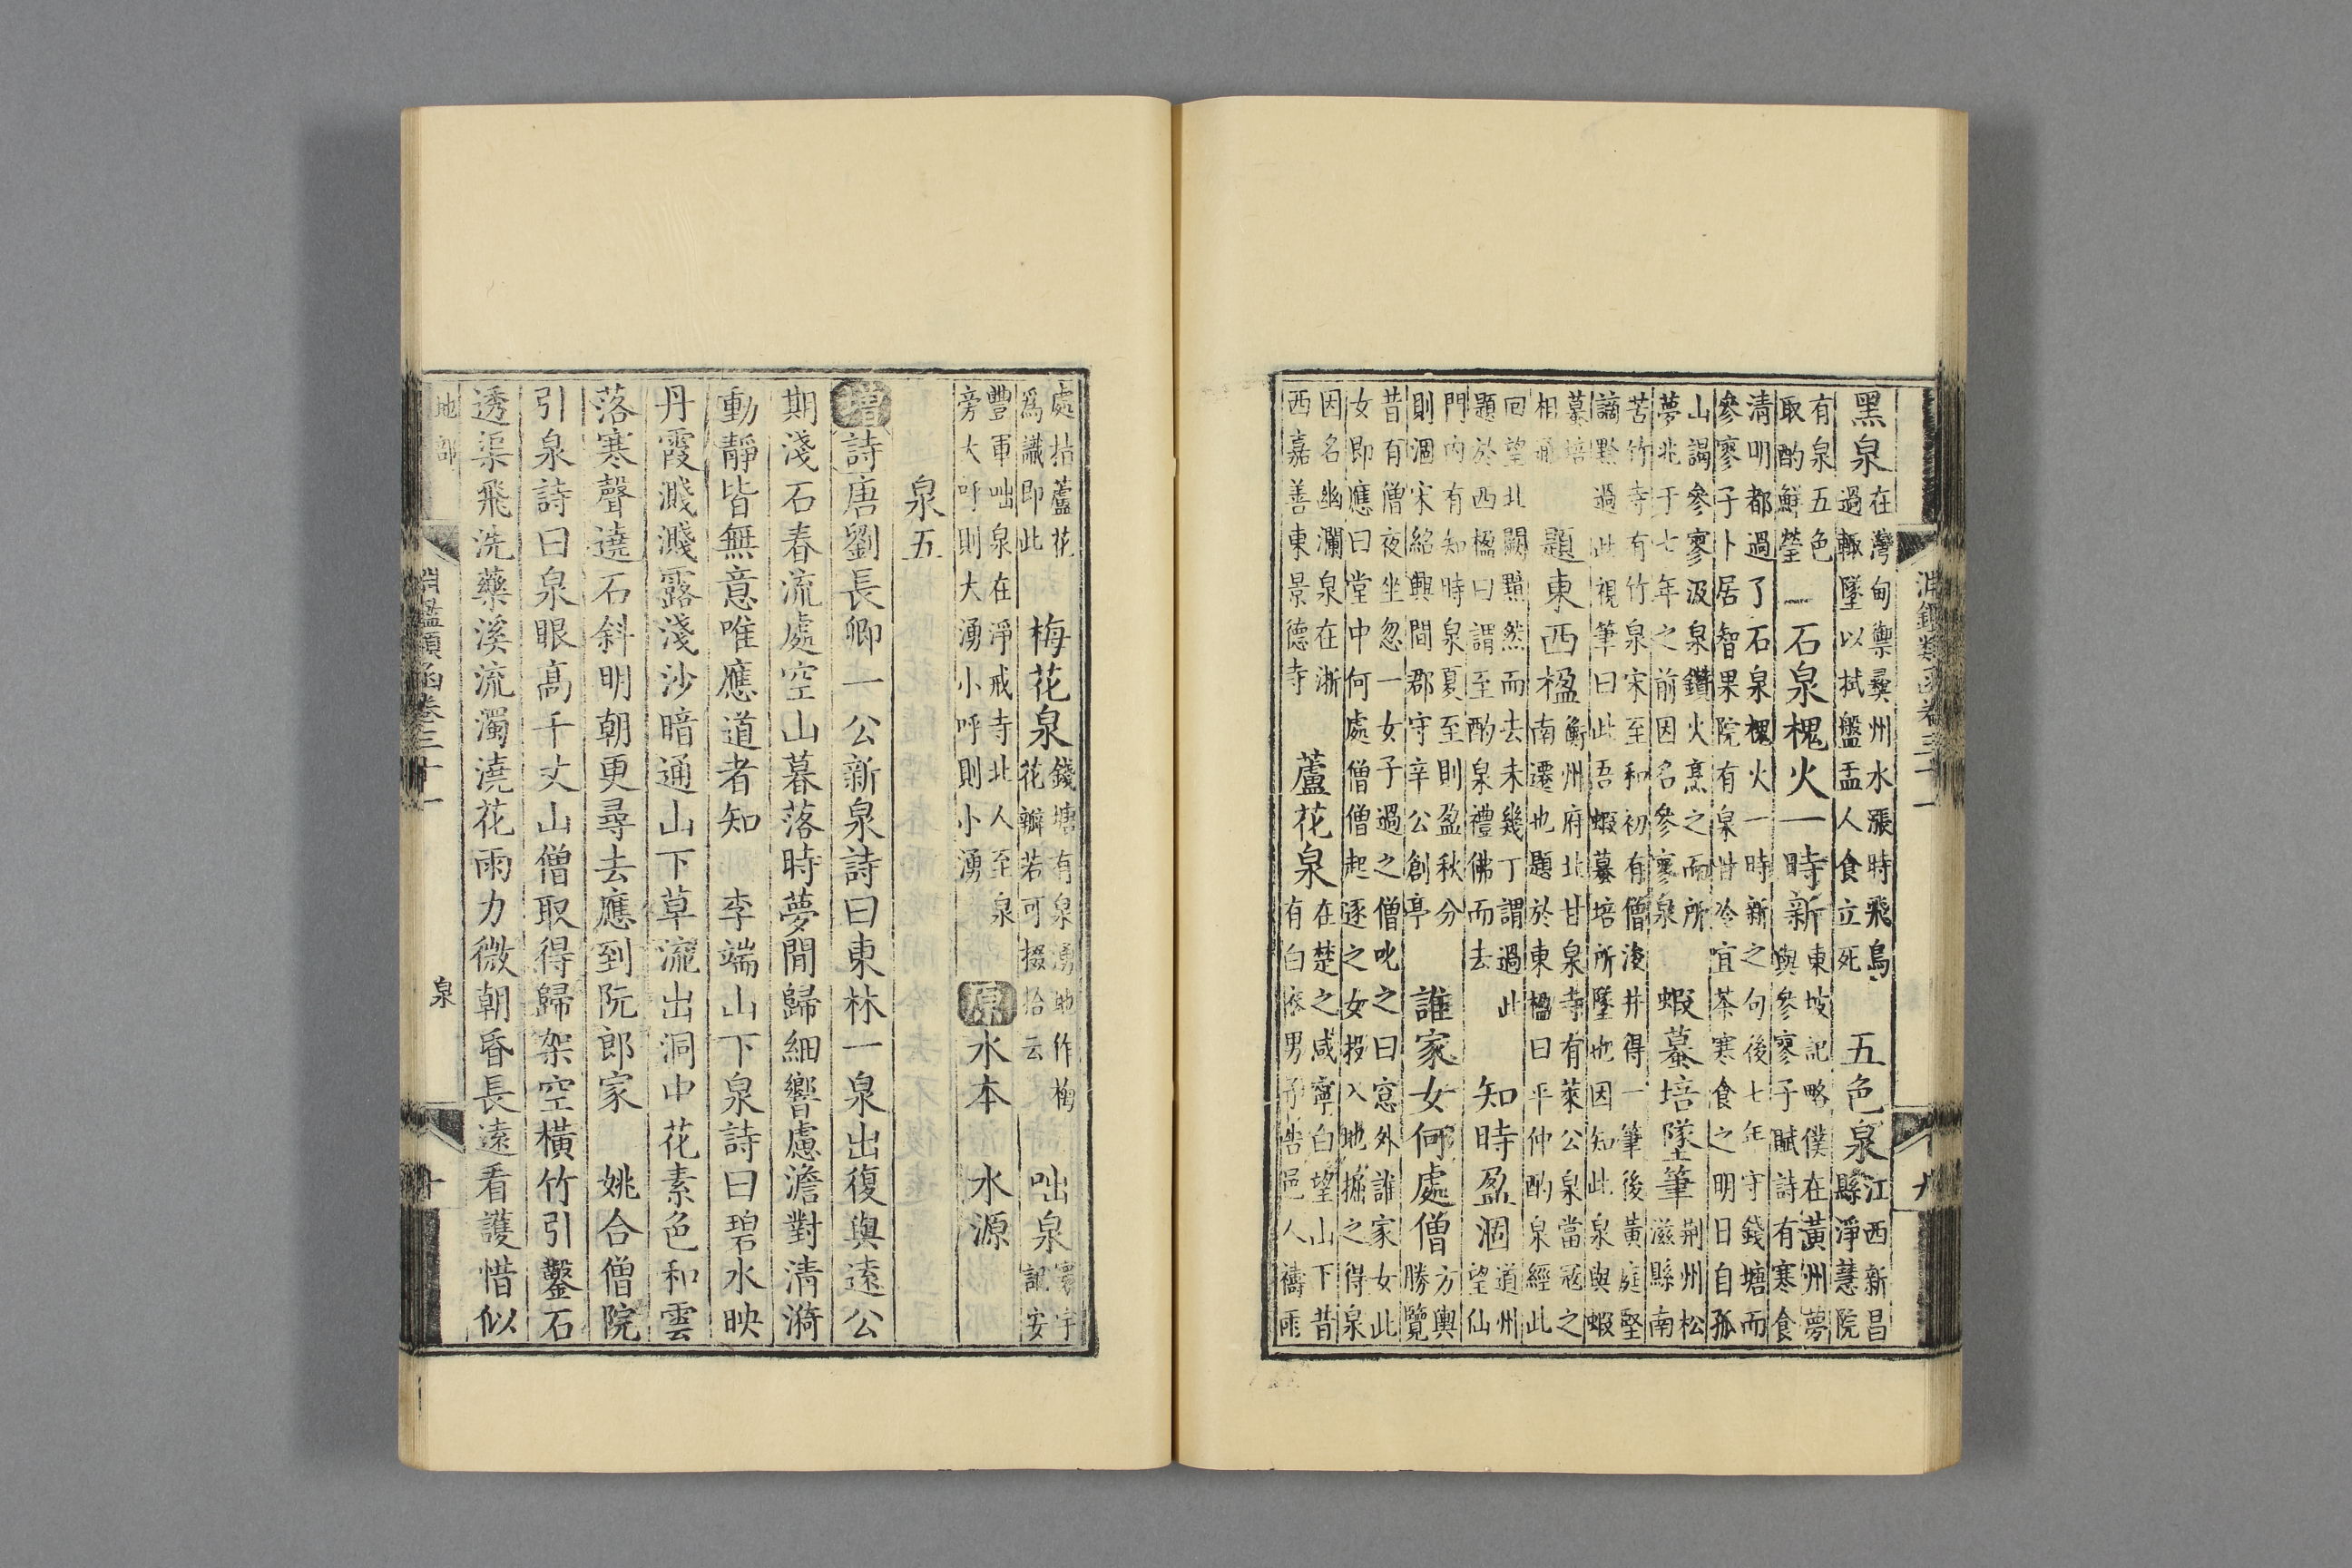 淵鑑類函卷三十一
九
黑泉在灣甸禦彝州水漲時飛鳥過輒墜以拭盤盂人食立死　五色泉江西新昌縣淨慧院
有泉五色取酌鮮瑩　一石泉槐火一時新東坡記略僕在黃州夢與參寥子賦詩有寒食
清明都過了石泉槐火一時新之句後七年守錢塘而參寥子卜居智果院有泉甘冷宜茶寒食之明日自孤
山謁參寥汲泉鑽火烹之而所夢兆于七年之前因名參寥泉　蝦蟇培墜筆荊州松滋縣南
苦竹寺有竹泉宋至和初有僧浚井得一筆後黃庭堅謫黔過此視筆曰此吾蝦蟇培所墜也因知此泉與蝦
蟇培相通　題東西楹衡州府北甘泉寺有萊公泉當冦之南遷也題於東楹曰平仲酌泉經此
回望北闕黯然而去未幾丁謂過此題於西楹曰謂至酌泉禮佛而去　知時盈涸道州望仙
門内有知時泉夏至則盈秋分則涸宋紹興間郡守辛公創亭　誰家女何處僧方輿勝覽
昔有僧夜坐忽一女子過之僧叱之曰窓外誰家女此女即應曰堂中何處僧僧起逐之女投入地掘之得泉
因名幽瀾泉在浙西嘉善東景德寺　蘆花泉在楚之咸寧白望山下昔有白衣男子告邑人禱雨
處拮蘆花為識即此　梅花泉錢塘有泉湧地作梅花瓣若可掇拾云　咄泉寰宇記安
豐軍咄泉在淨戒寺北人至泉旁大呼則大湧小呼則小湧　原水本　水源
泉五
增詩唐劉長卿一公新泉詩曰東林一泉出復與遠公
期淺石春流處空山暮落時夢閒歸細響慮澹對清漪
動靜皆無意唯應道者知　李端山下泉詩曰碧水映
丹霞濺濺露淺沙暗通山下草流出洞中花素色和雲
落寒聲遶石斜明朝更尋去應到阮郎家　姚合僧院
引泉詩曰泉眼高千丈山僧取得歸架空橫竹引鑿石
透渠飛洗藥溪流濁澆花雨力微朝昏長遠看護惜似
地部　淵鑑類函卷三十一　泉　十